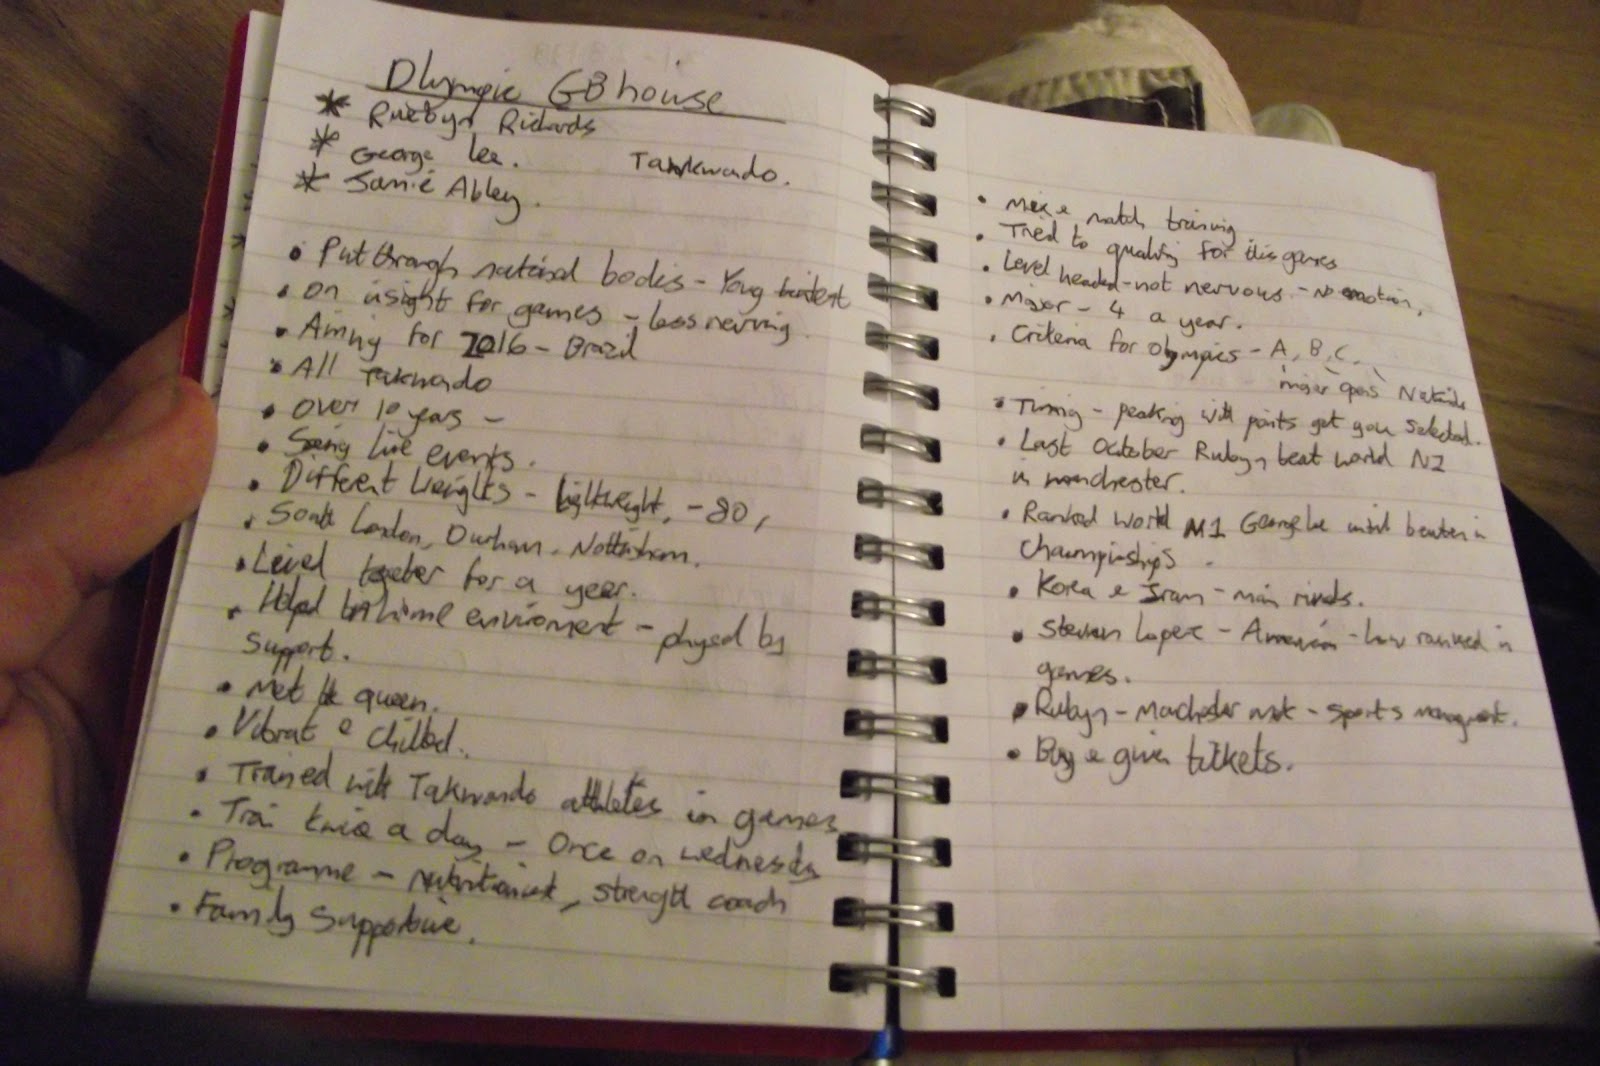 Olympic GB house
* Ruebyn Richards
* George Lee.
Taekwado.
* Jamie Abley.
• Put through national bodies - Young
• On insight for games - less nerving
• Aiming for 2016 - Brazil
• All Takwado
• Over 10 years -
• Seeing live events.
• Different weights - lightweight, -80,
• South London, Durham, Nottingham.
• Level together for a year.
• Helped home enviroment - played by
support.
• Met the queen.
• Vibrat & chilled.
• Trained with Takwando athletes in games
• Train twice a day - Once on wednesday
• Programme - nutritionist, strength coach
• Family Supportive.
• Mix & match training
• Tried to qualify for this games
• Level headed - not nervous - No emotion,
• Major - 4 a year.
• Criteria for Olympics - A, B, C.
major opens Nationals
• Timing - peaking with points get you selected.
• Last October Rubyn beat world N2
in manchester.
• Ranked World N1 George lee until beaten in
championships.
• Korea & Iran - main rivals.
• Steven Lopez - American - low ranked in
games.
• Rubyn - Manchester met - Sports managment.
• Buy & given tickets.